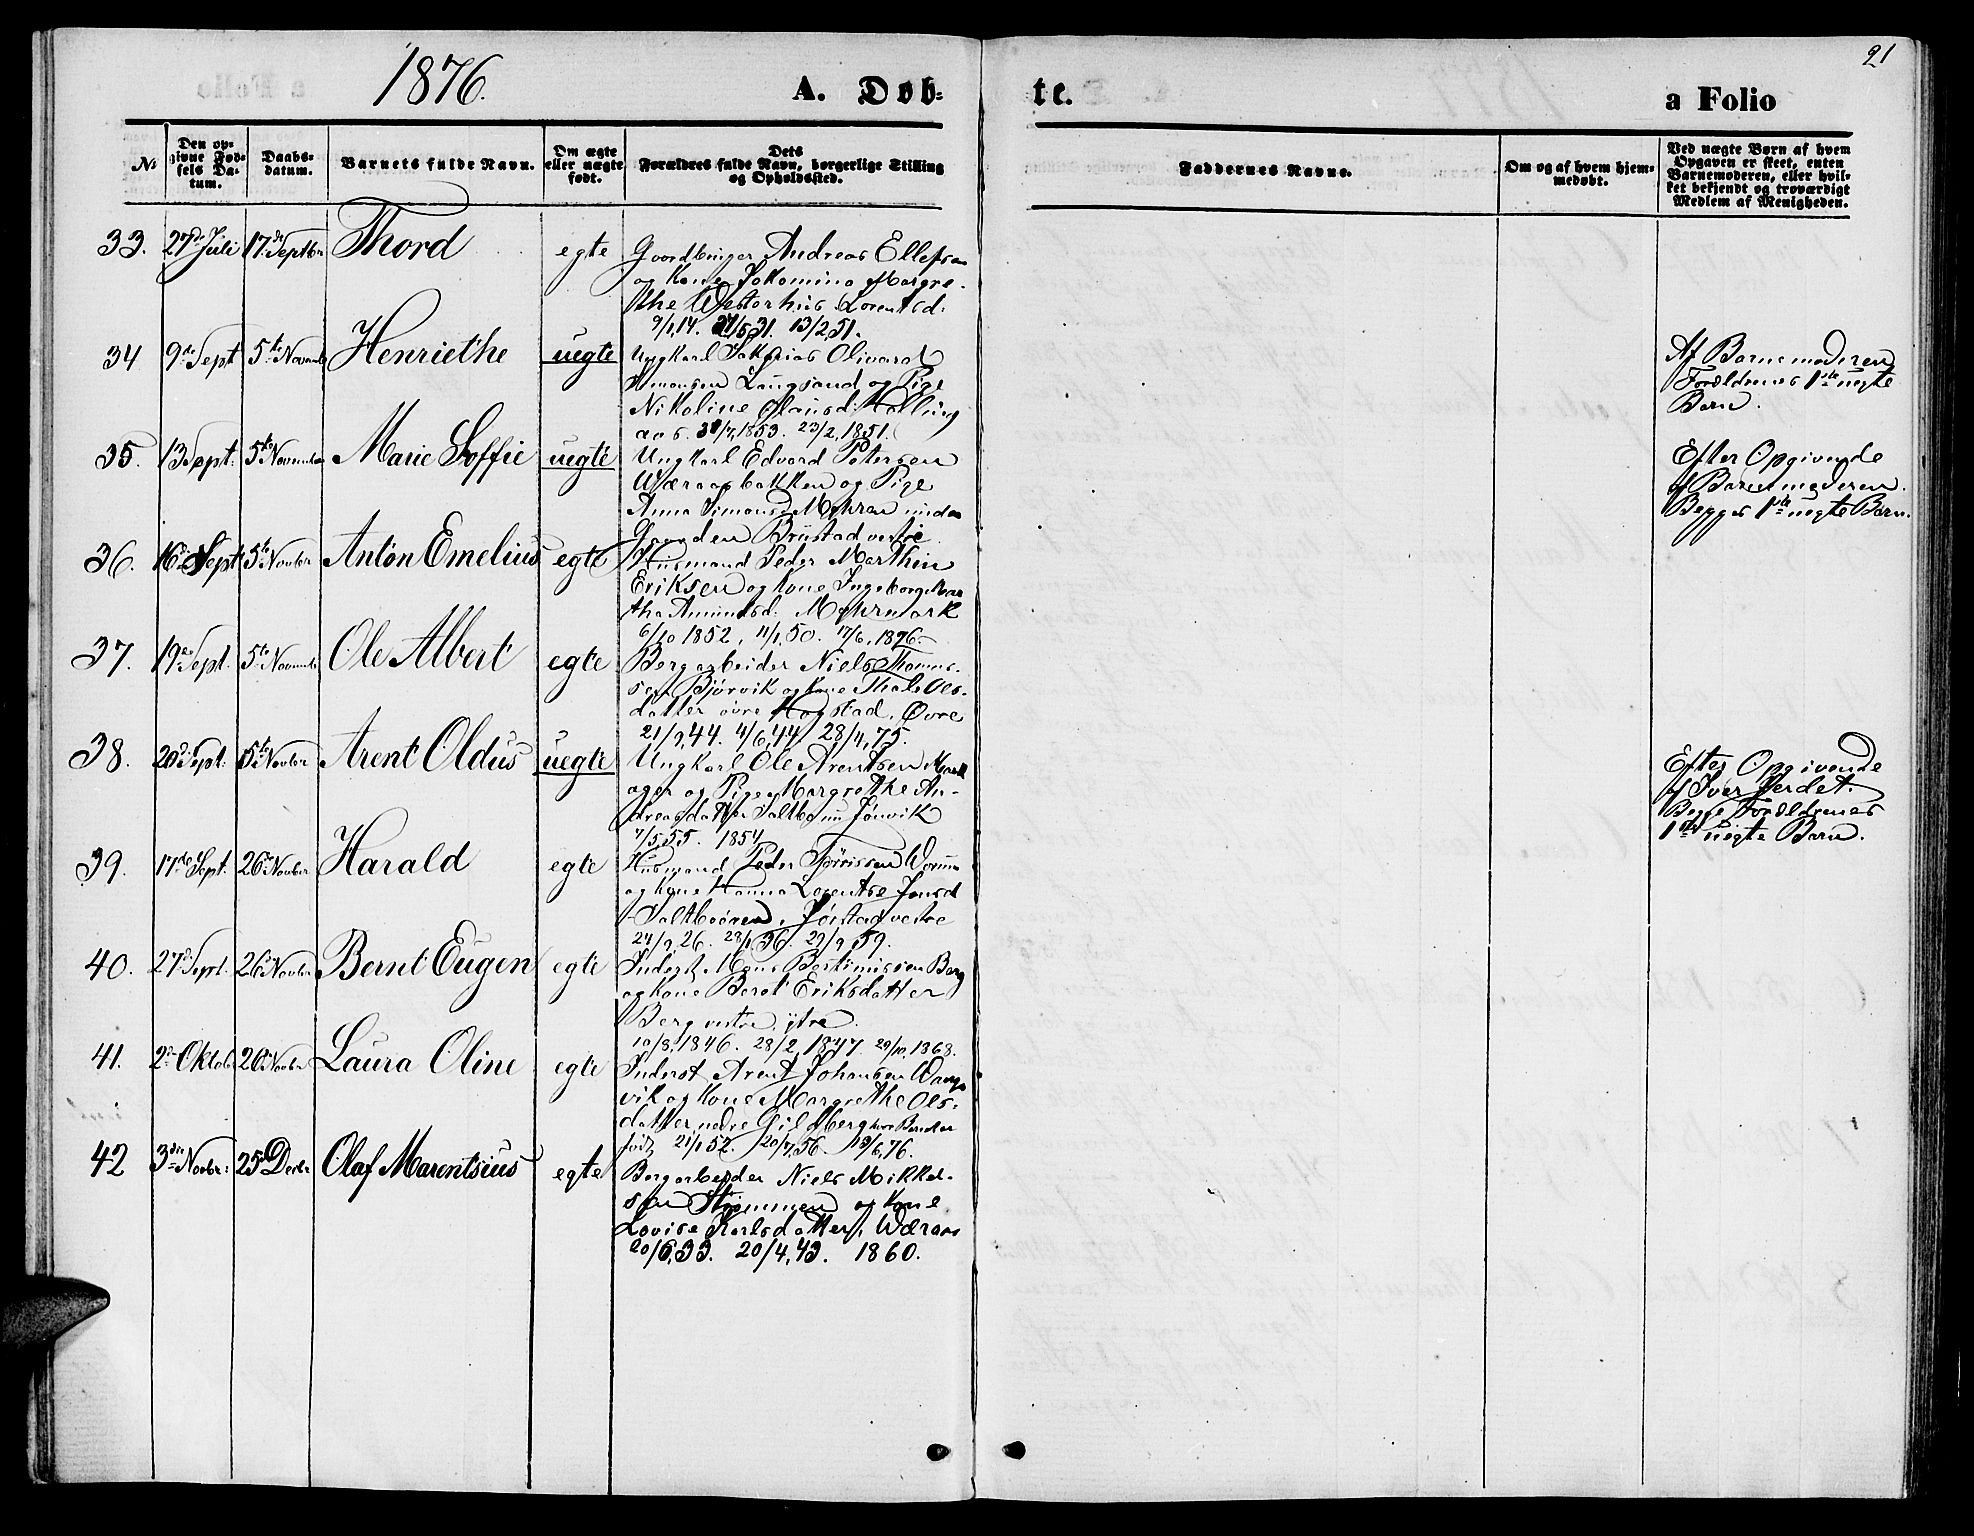 21
1876.
A. Døb-
te.
a Folio
№
Den op-
givne Fød-
sels Da-
tum.
Daabs-
datum.
Barnets fulde Navn.
Om ægte
eller uægte
født.
Dets
Forældres fulde Navn, borgerlige Stilling
og Opholdssted.
Faddernes Navne.
Om og af hvem hjem-
medøbt.
Ved uægte Børn af hvem
Opgaven er skeet, enten
Barnemoderen, eller hvil-
ket bekjendt og troværdigt
Medlem af Menigheden.
33. 27de Juli 17de Septbr Thord egte
Andreas Ellefsen
og Kone Jokomina Margre-
the Westerhus Lorentsd:
9/1,14. 31. 13/2 51.
34 9de Sept 5te Novemb Henriethe uegte
Ungkarl Sakrias Olivard
Simonsen Langsand og Pige
Nikoline Olausd:
1853. 23/2,1851.
Af Barnemoderen
Forældrenes 1ste uegte
Barn.
35. 13 Sept: 5te November Marie Soffie uegte
Ungkarl Edvard Petersen
Wæraasbakken og Pige
Anna Simonsd Mohran under
Gaarden Brustad vestre
Efter Opgivende
af Barnemoderen.
Begges 1ste uegte Barn.
36. 16de Sept 5te Novbr Anton Emelius egte
Husmand Peder Marthin
Eriksen og Kone Ingeborg Mar
tha Amundsd:
6/10 1852, 11/1,50. 17/6,1876.
37. 19de Sept. 5te Novemb Ole Albert egte
Bergarbeider Niels Thomas-
sen Bjørvik og Kone Thale Ols-
datter øvre Hogstad, Øvre
21/9,44. 4/6,44 28/11,75.
38. 20de Sept. 5te Novbr Arent Oldus uegte
Ungkarl Ole Arentsen
ager og Pige Margrethe An-
dreasdatter
7/5,55. 1854
Efter Opgivende
af Iver Verdet.
Begge Forældrenes
1ste uegte Barn.
39. 17de Sept. 26de Novbr Harald egte
Husmand Peder
og Kone Hanna Lorentse Jonsd
24/9,26. 28/1,36. 29/9,59.
40. 27de Sept. 26de Novbr Bernt Eugen egte
Inderst Mons Berg
og Kone Beret Eriksdatter
Berg vestre, ytre.
10/8,1846. 28/2,1847. 29/10,1868.
41. 2de Oktob. 26de Novbr Laura Oline egte
Inderst Arent Johansen Wang-
vik og Kone Margrethe Ols-
datter nedre Gilberg
født 21/1 52. 20/7,56. 76.
42 3die Novbr: 25de Decbr Olaf Marentsius egte
Bergarbeider Niels Mikkel-
sen Strømmen og Kone
Lovise Karlsdatter, Wæraas
20/6,33. 20/4,43. 1860.